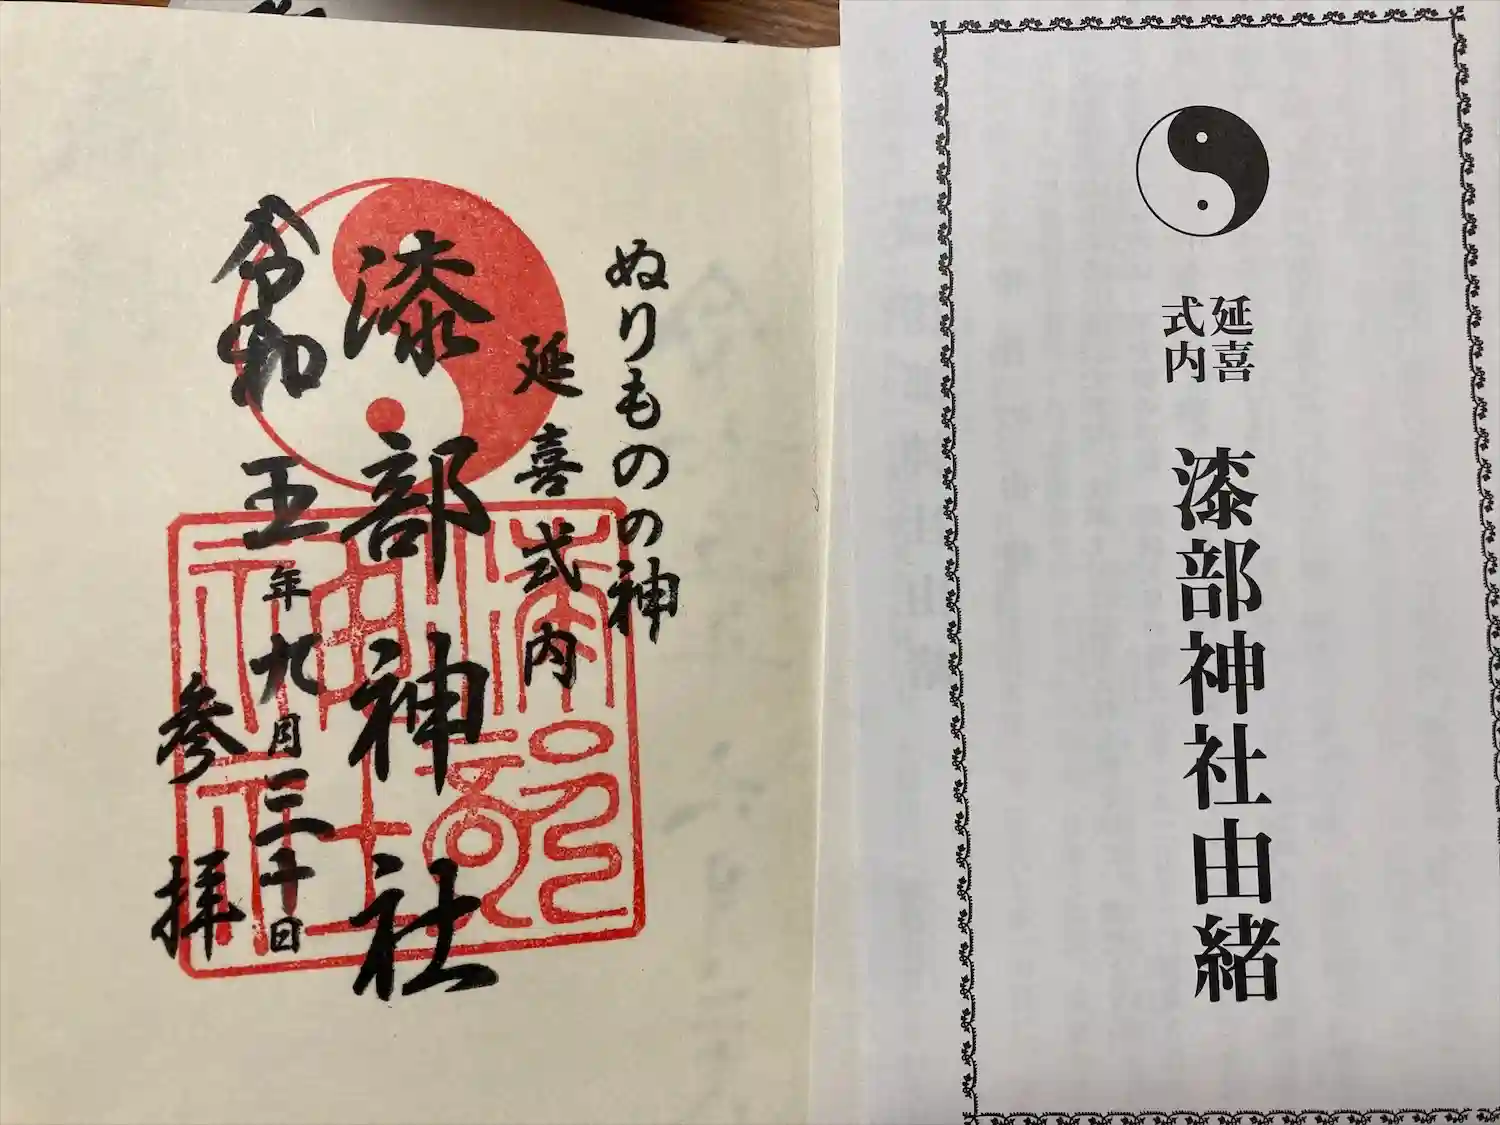 ぬりものの神
延喜式内
漆部神社
令和五年九月三十日
参拝
漆部神社
延喜
式内
漆部神社由緒